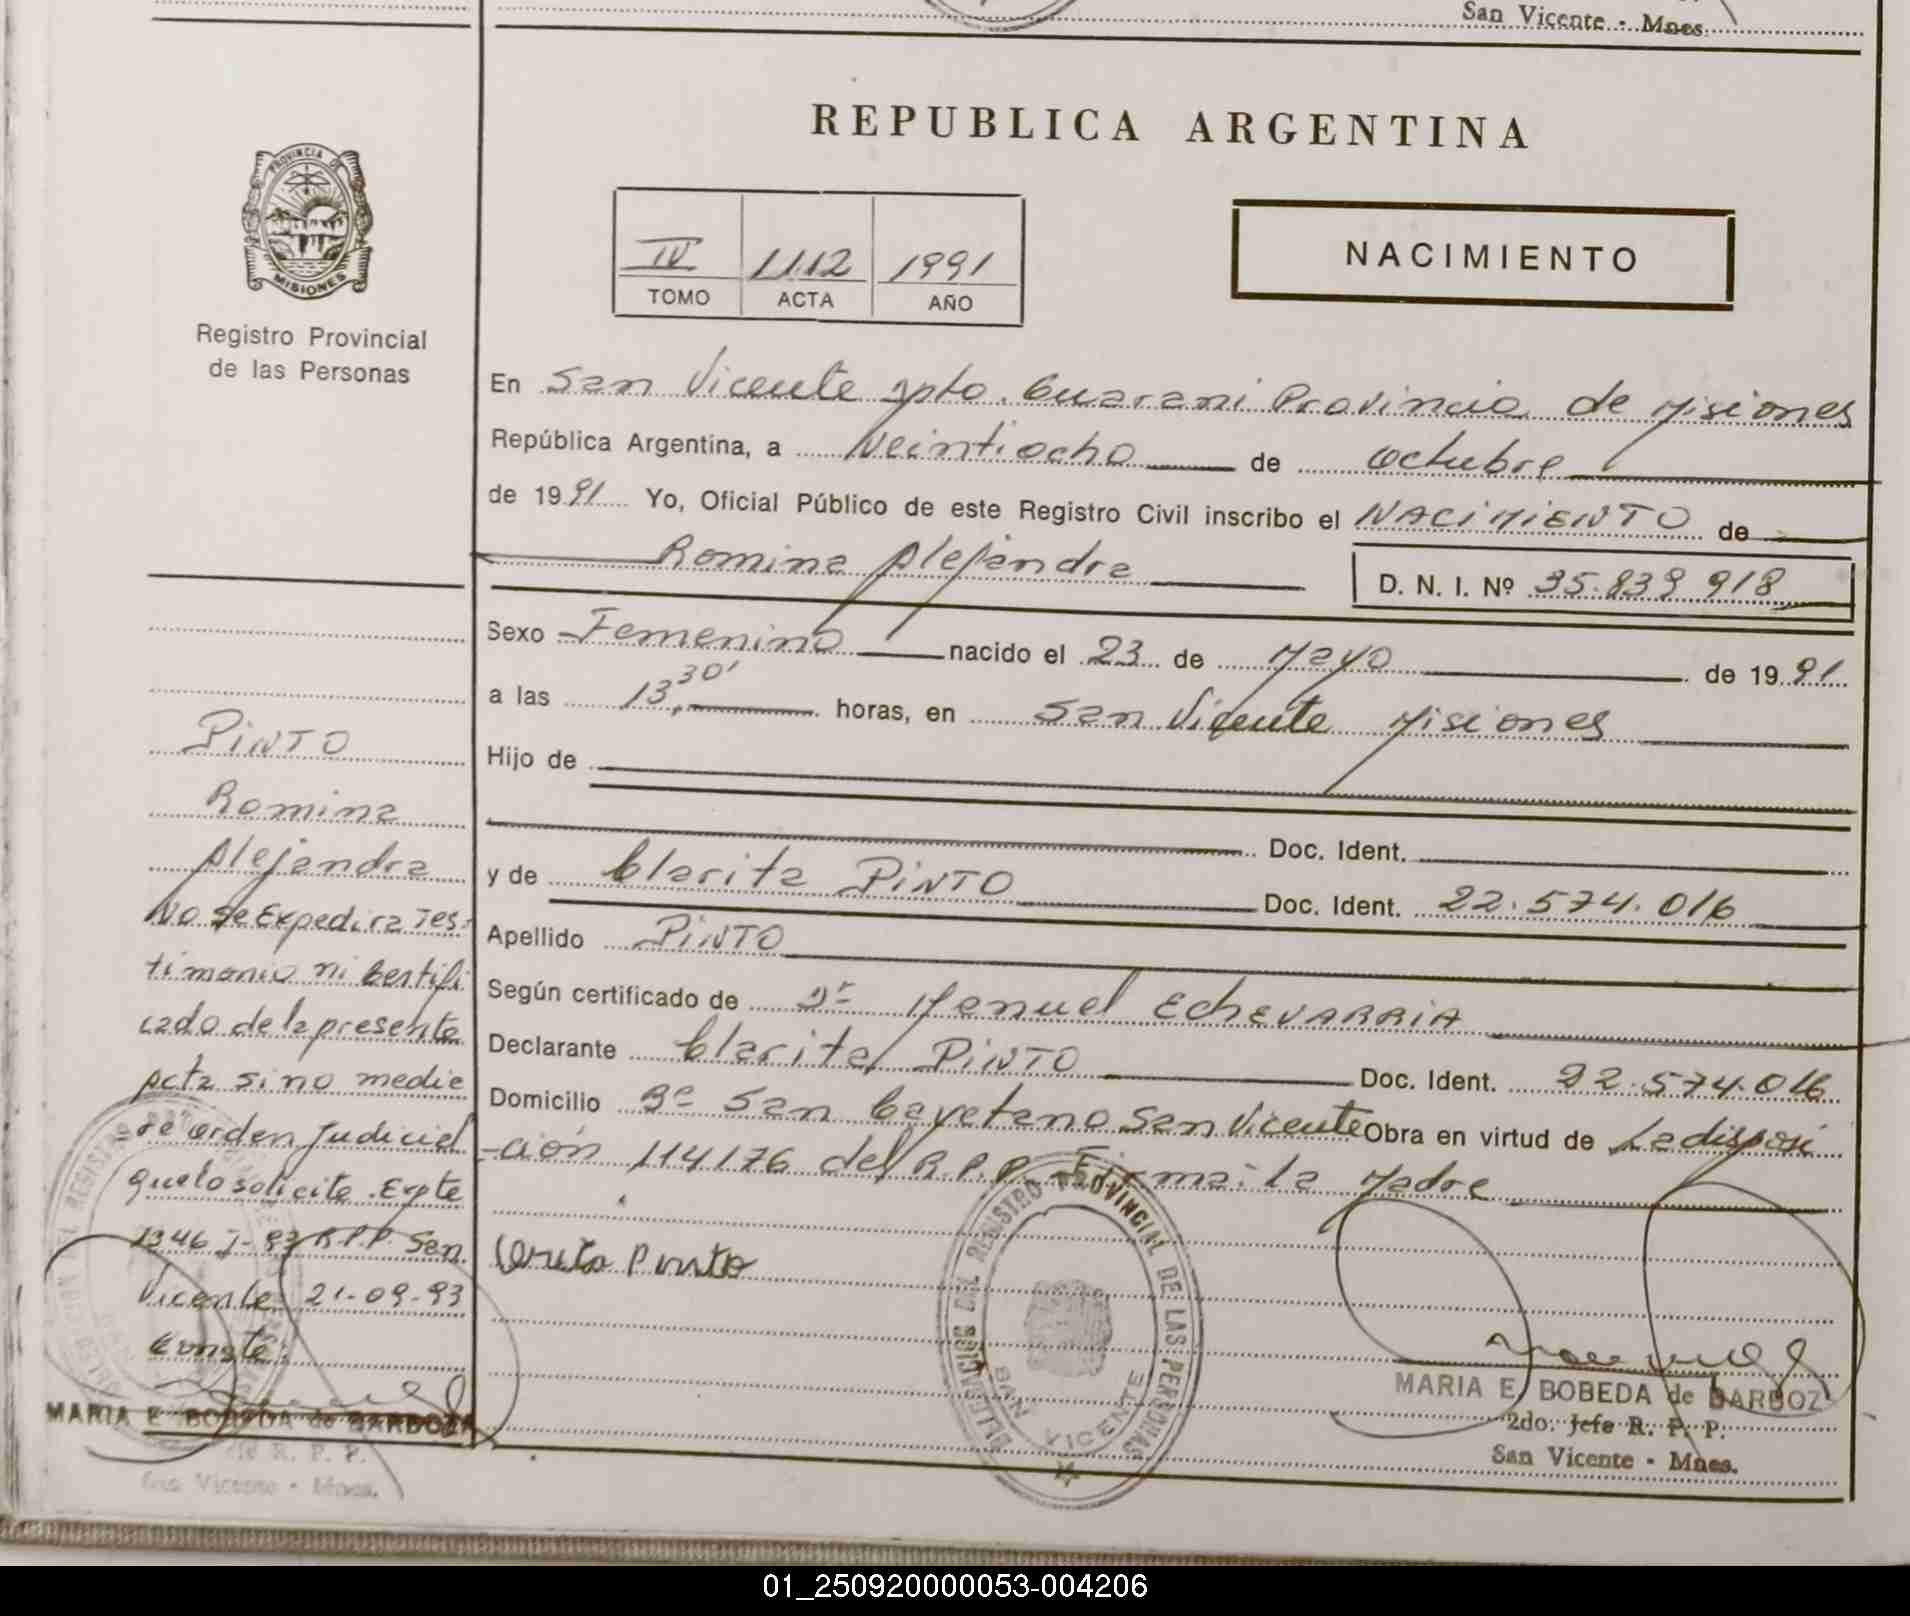 San Vicente - Mnes.
REPUBLICA ARGENTINA
PROVINCIA DE
MISIONES
Registro Provincial
de las Personas
IV 1112 1991
TOMO ACTA AÑO
NACIMIENTO
En San Vicente Dpto. Guarani Provincia de Misiones
República Argentina, a Veintiocho de Octubre
de 1991 Yo, Oficial Público de este Registro Civil inscribo el NACIMIENTO de
Romina Alejandra D. N. I. Nº 35.839 918
Sexo Femenino nacido el 23 de Mayo de 1991
a las 13,30' horas, en San Vicente Misiones
Hijo de
Doc. Ident.
y de Clarita PINTO Doc. Ident. 22.574.016
Apellido PINTO
Según certificado de Dr Manuel EcheVARRIA
Declarante Clarita PINTO Doc. Ident. 22.574.016
Domicilio Bº San Cayetano San Vicente Obra en virtud de La disposi
-ción 114176 del R.P.P. Firma: la Madre
PINTO
Romina
Alejandra
No se Expedira Tes-
timonio ni Certifi
cado de la presente
Acta si no medie
de orden Judicial
que lo solicite. Expte
1346 J-93 R.P.P. San
Vicente 21-09-93
Conste:
MARIA E. BOBEDA de BARBOZA
R. P. P.
San Vicente - Mnes.
Pinto
DEL REGISTRO PROVINCIAL DE LAS PERSONAS
SAN VICENTE
MARIA E. BOBEDA de BARBOZ
2do. Jefe R. P. P.
San Vicente - Mnes.
01_250920000053-004206